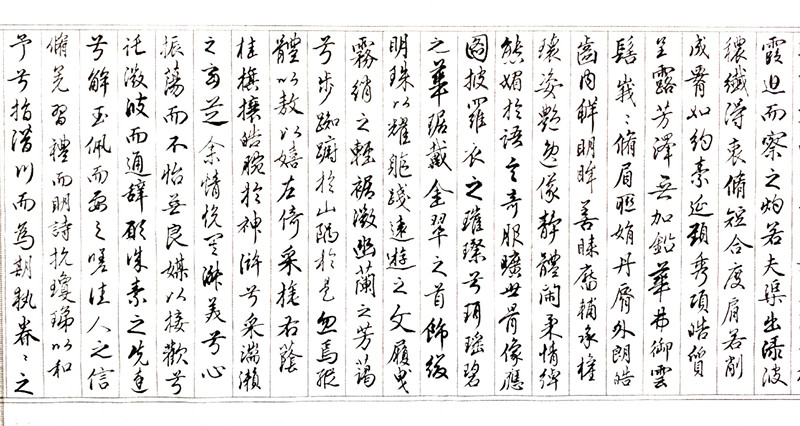 霞迫而察之灼若夫渠出渌波
穠纖得衷脩短合度肩若削
成腰如約素延頸秀項皓質
呈露芳澤無加鉛華弗御雲
髻峩〻脩眉聯娟丹脣外朗皓
齒内鮮明眸善睞靨輔承權
瓌姿艷逸儀靜體閑柔情綽
態媚於語言奇服曠世骨像應
圖披羅衣之璀璨兮珥瑤碧
之華琚戴金翠之首飾綴
明珠以耀軀踐遠遊之文履曳
霧綃之輕裾微幽蘭之芳藹
兮步踟躕於山隅於是忽焉縱
體以敖以嬉左倚采旄右蔭
桂旗攘皓腕於神滸兮采湍瀨
之玄芝余情悅其淑美兮心
振蕩而不怡無良媒以接歡兮
託微波而通辭願誠素之先達
兮解玉佩而要之嗟佳人之信
脩羌習禮而明詩抗瓊珶以和
予兮指潛川而為期執眷〻之